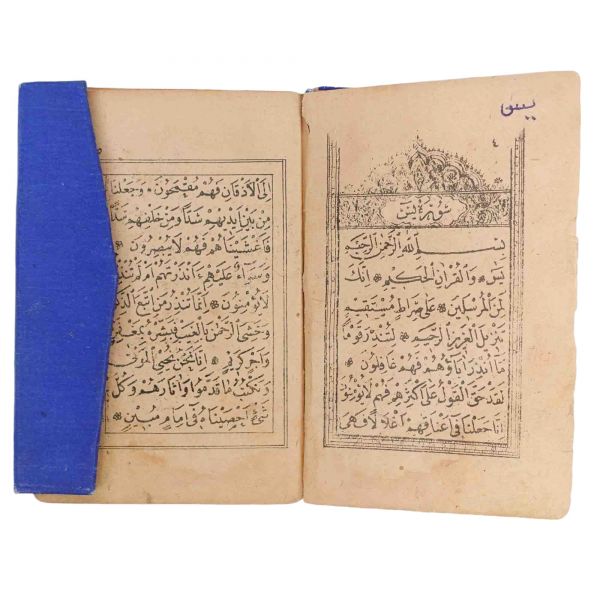 يس
٤
سورة يس
بسم الله الرحمن الرحيم
يس والقرآن الحكيم انك
لمن المرسلين على صراط مستقيم
تنزيل العزيز الرحيم لتنذر قوما
ما انذر اباؤهم فهم غافلون
لقد حق القول على اكثرهم فهم لا يؤمنون
انا جعلنا في اعناقهم اغلالا فهي
٥
الى الاذقان فهم مقمحون وجعلنا
من بين ايديهم سدا ومن خلفهم سدا
فاغشيناهم فهم لا يبصرون
وسواء عليهم ءانذرتهم ام لم تنذرهم
لا يؤمنون انما تنذر من اتبع الذكر
وخشي الرحمن بالغيب فبشره بمغفرة
واجر كريم انا نحن نحيي الموتى
ونكتب ما قدموا واثارهم وكل
شيء احصيناه في امام مبين